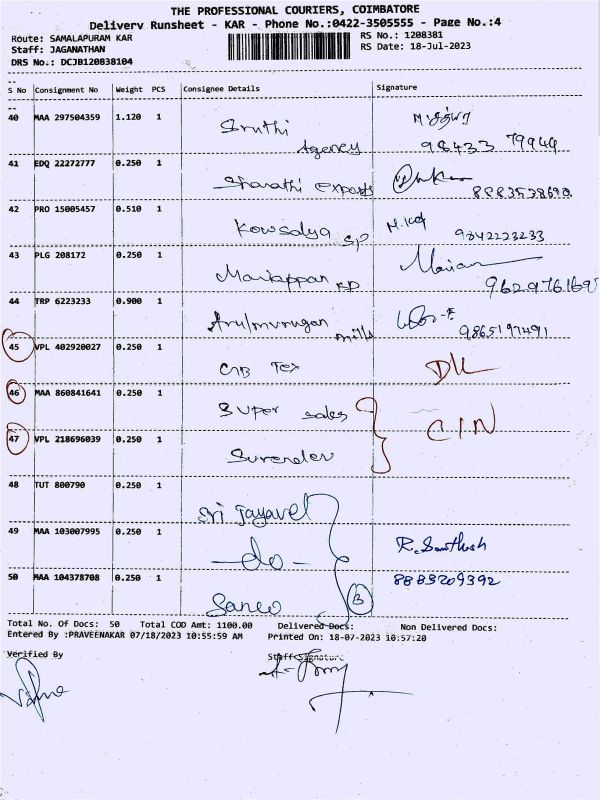 THE PROFESSIONAL COURIERS, COIMBATORE
Delivery Runsheet - KAR - Phone No.:0422-3505555 - Page No.:4
Route: SAMALAPURAM KAR RS No.: 1208381
Staff: JAGANATHAN RS Date: 18-Jul-2023
DRS No.: DCJB120838104
S No Consignment No Weight PCS Consignee Details Signature
40 MAA 297504359 1.120 1 Sruthi Agency 98433 79949
41 EDQ 22272777 0.250 1 Sharathi exports 8883538690
42 PRO 15005457 0.510 1 Kowsalya SP 9842223233
43 PLG 208172 0.250 1 Mariappan SP Marian
44 TRP 6223233 0.900 1 Arulmurugan mills 9865197491
45 VPL 402920027 0.250 1 Tex DL
46 MAA 860841641 0.250 1 Super sales CIN
47 VPL 218696039 0.250 1 Surender
48 TUT 800790 0.250 1 Sri Jayavel
49 MAA 103007995 0.250 1 -do- R. Santhosh
50 MAA 104378708 0.250 1 3 8883209392
Total No. Of Docs: 50 Total COD Amt: 1100.00 Delivered Docs: Non Delivered Docs:
Entered By :PRAVEENAKAR 07/18/2023 10:55:59 AM Printed On: 18-07-2023 10:57:20
Verified By Staff Signature